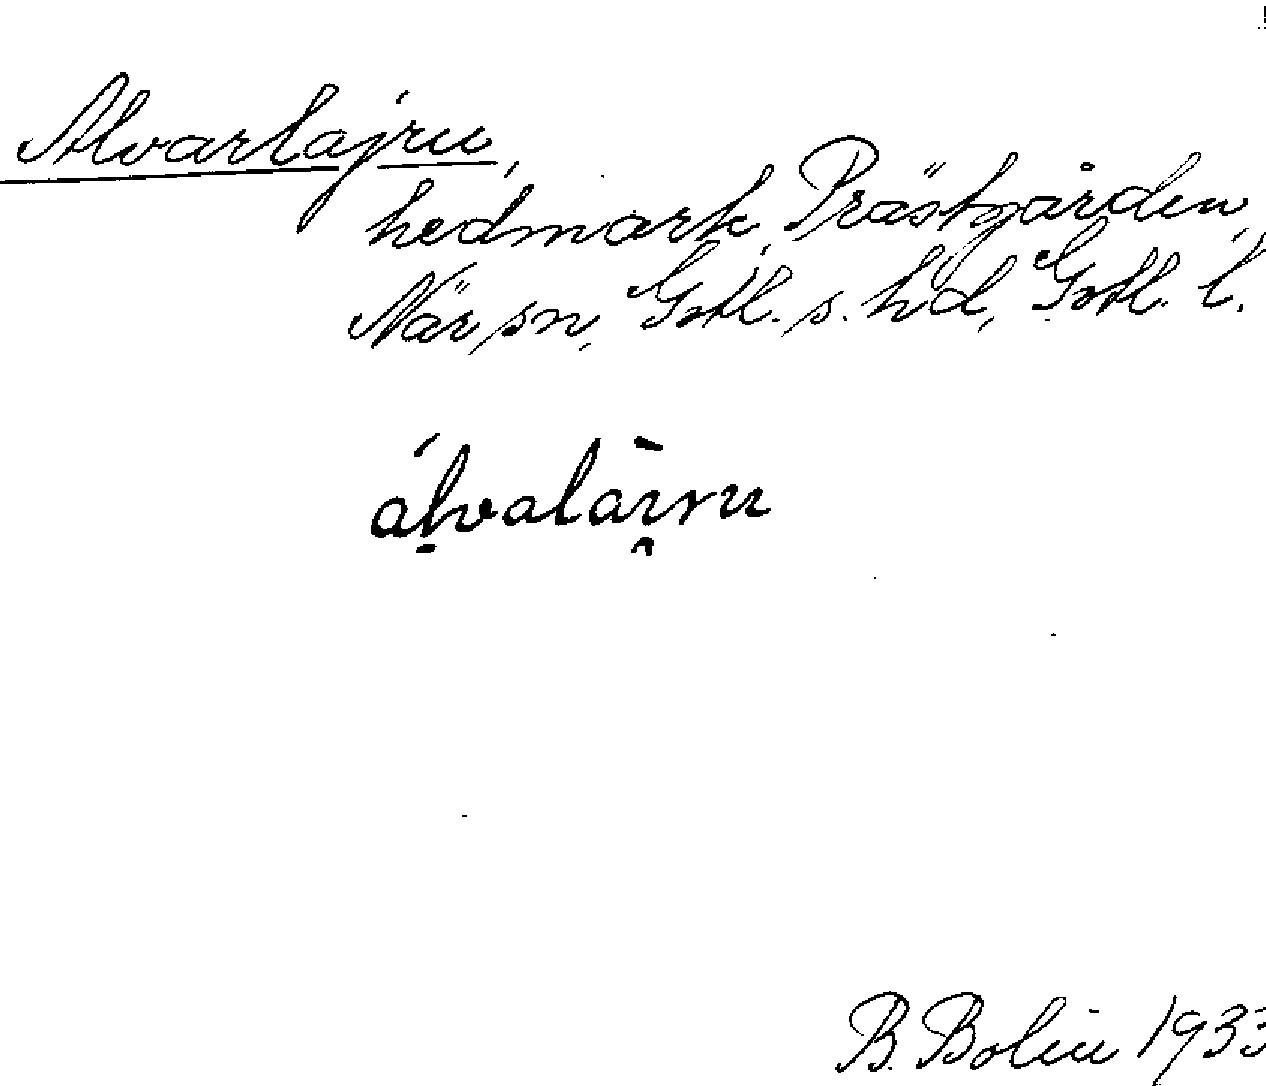 Alvarlajru,
hedmark, Prästgården,
När sn, Gotl. s. hd, Gotl. l.
álvalàı̯ru
B. Bolin 1933